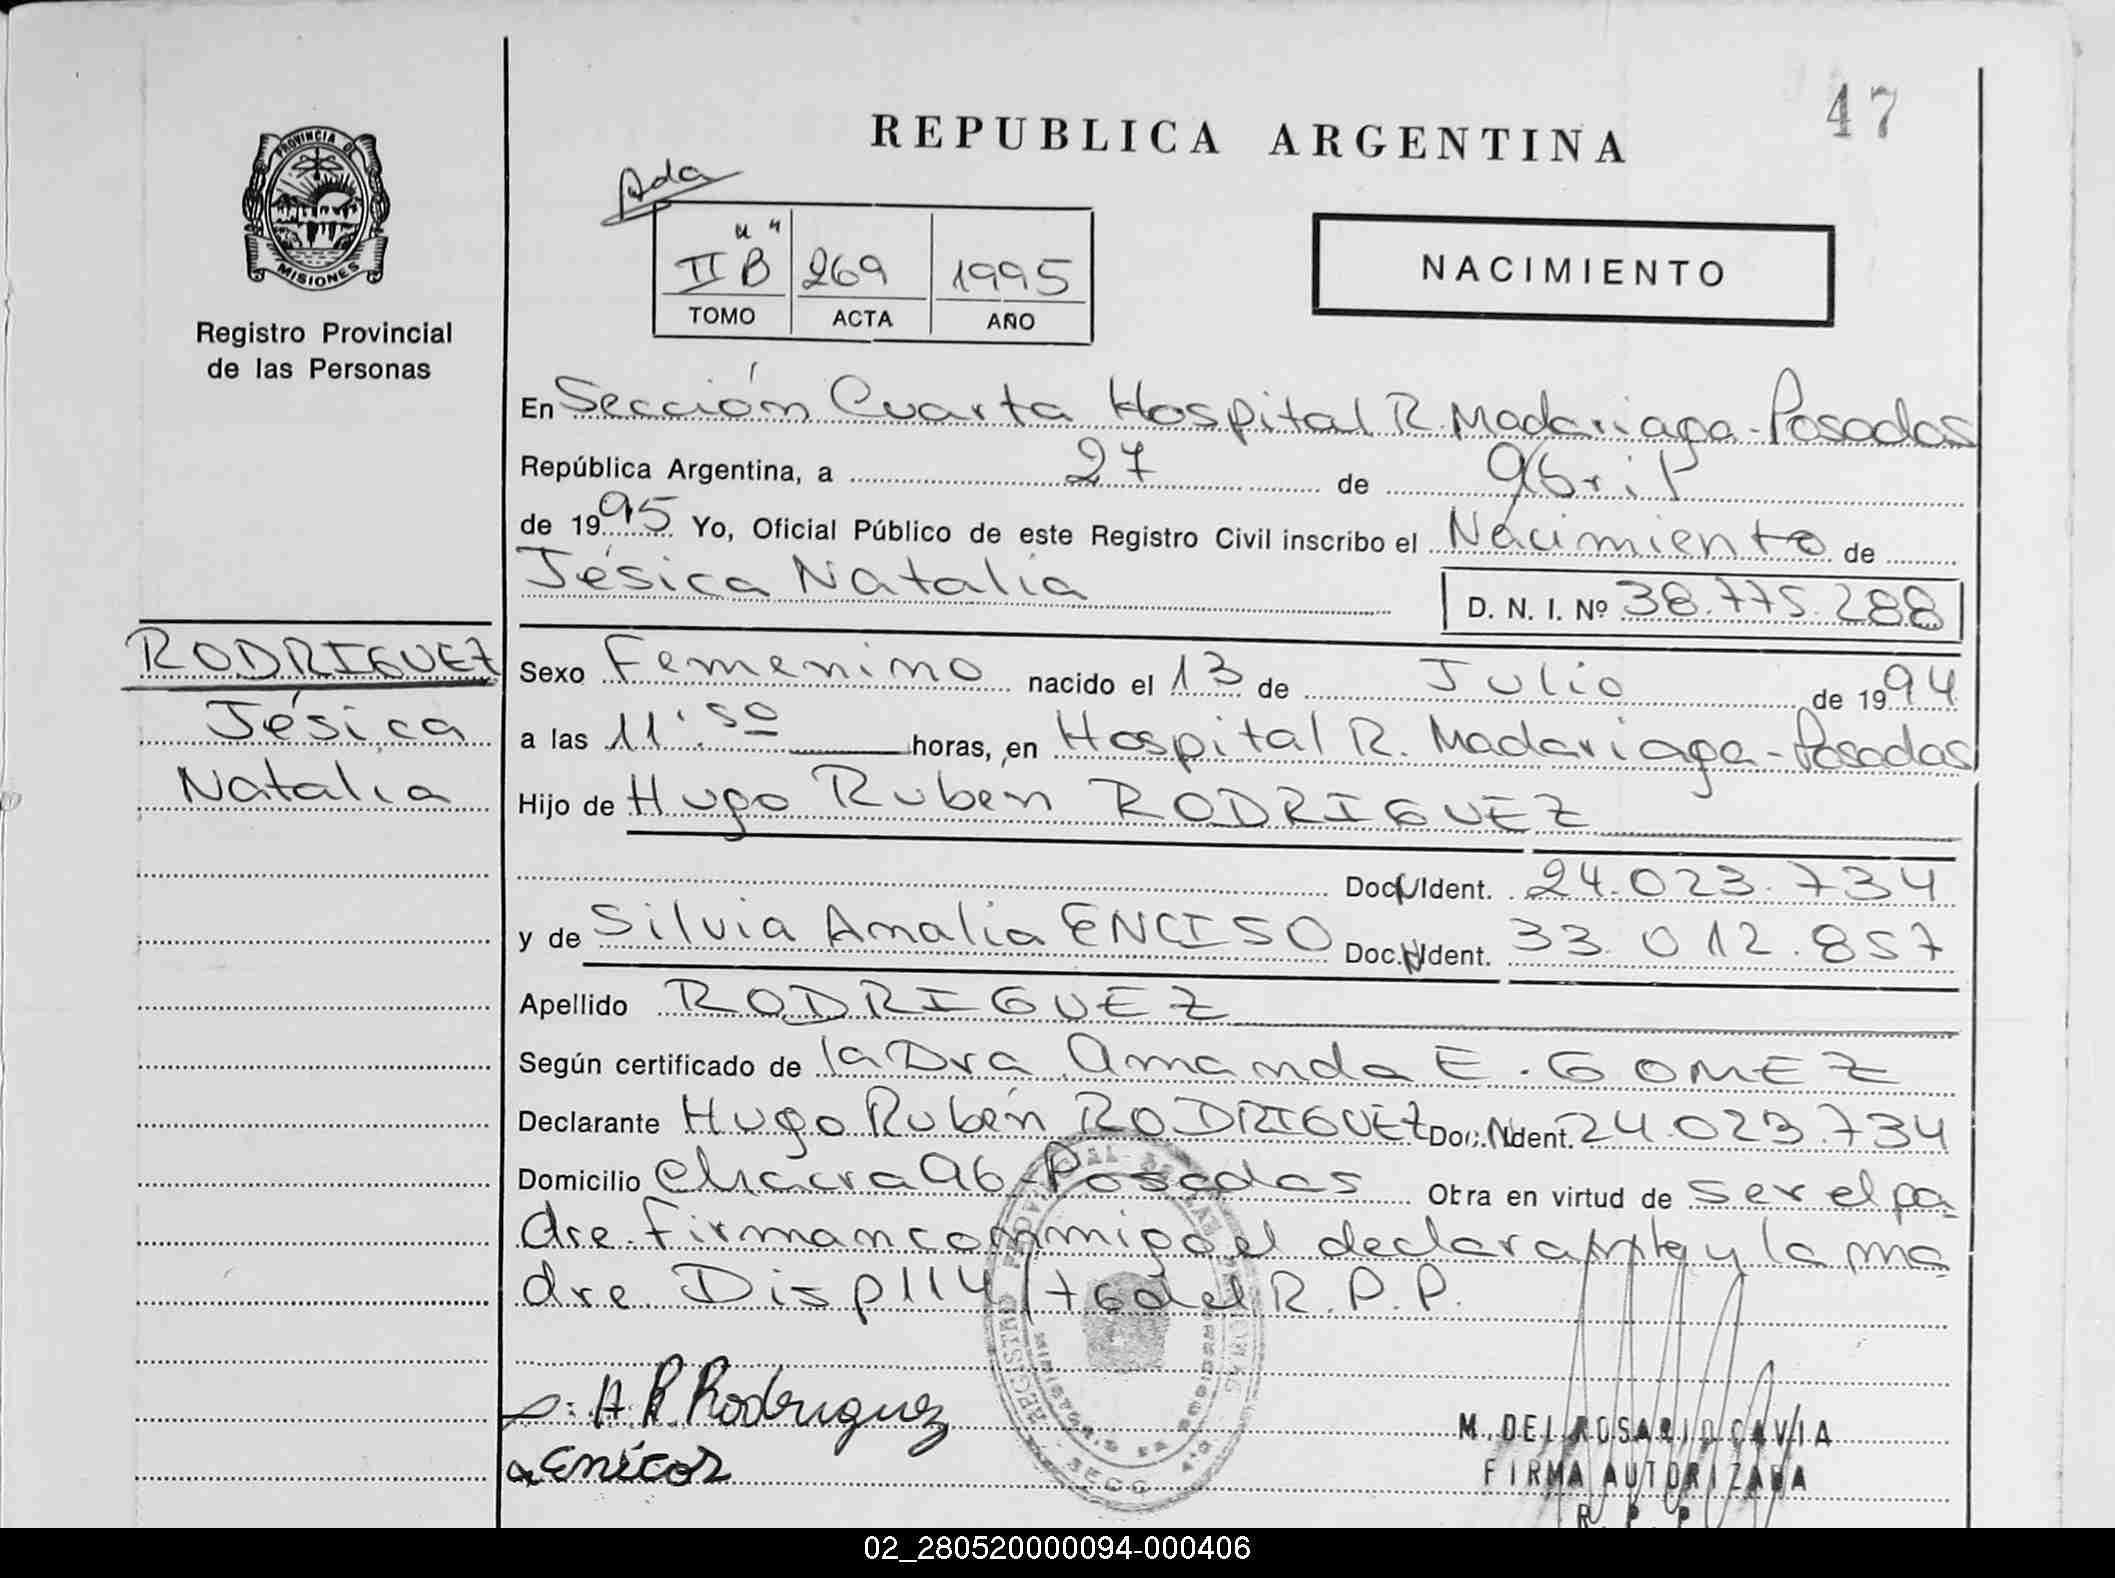 47
REPUBLICA ARGENTINA
Ada
PROVINCIA DE
MISIONES
Registro Provincial
de las Personas
II "B" 269 1995
TOMO ACTA AÑO
NACIMIENTO
En Sección Cuarta Hospital R. Madariaga - Posadas
República Argentina, a 27 de Abril
de 1995 Yo, Oficial Público de este Registro Civil inscribo el Nacimiento de
Jésica Natalia
D. N. I. Nº 38.775.288
RODRIGUEZ
Jésica
Natalia
Sexo Femenino nacido el 13 de Julio de 1994
a las 11:50 horas, en Hospital R. Madariaga - Posadas
Hijo de Hugo Ruben RODRIGUEZ
Doc. N Ident. 24.023.734
y de Silvia Amalia ENCISO Doc. N Ident. 33.012.857
Apellido RODRIGUEZ
Según certificado de la Dra Amanda E. GOMEZ
Declarante Hugo Rubén RODRIGUEZ Doc. N Ident. 24.023.734
Domicilio Chacra 96 - Posadas Obra en virtud de ser el pa
dre. Firman conmigo el declarante y la ma
dre. Disp 114/ del R.P.P.
H R Rodriguez
M. DEL ROSARIO CAVIA
FIRMA AUTORIZADA
R. P. P
02_280520000094-000406